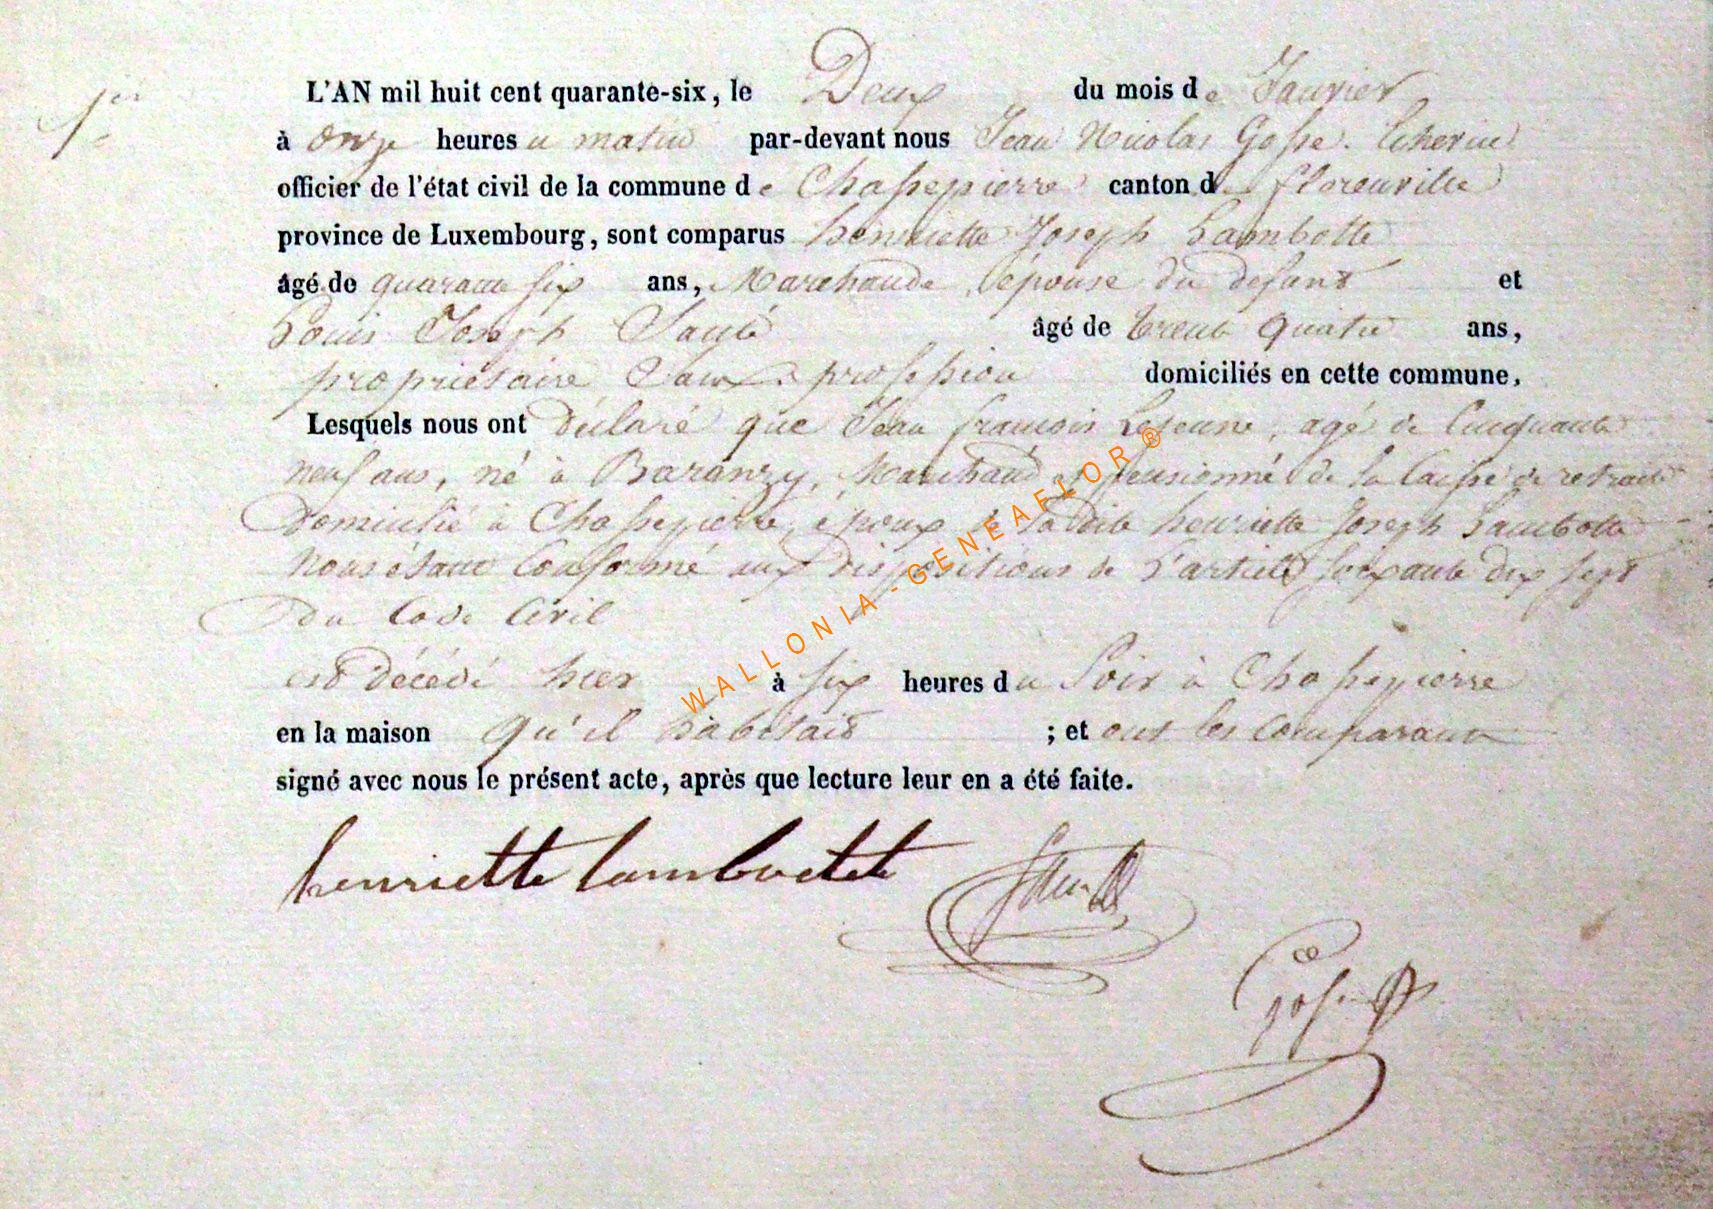 1er
L'AN mil huit cent quarante-six, le Deux du mois de Janvier
à onze heures u matin par-devant nous Jean Nicolas Gosse. Echevin
officier de l'état civil de la commune de Chassepierre canton de florenville
province de Luxembourg, sont comparus henriette Joseph Lambotte
âgé de quarante six ans, Marchande, épouse du defunt et
Louis Joseph Santé âgé de trente quatre ans,
propriétaire Sans profession domiciliés en cette commune,
Lesquels nous ont déclaré que Jean francois Lejeune, agé de Cinquante
neuf ans, né à Baranzy, Marchand et pensionné de la Caisse de retraite
Domicilié à Chassepierre, époux de la dite henriette Joseph Lambotte
Nous étant Conformé aux dispositions de L'article soixante dix sept
du Code Civil
est décédé hier à six heures du Soir à Chassepierre
en la maison qu'il habitait ; et ont les comparant
signé avec nous le présent acte, après que lecture leur en a été faite.
henriette lamboette
Gosse
WALLONIA-GENEAFLOR®